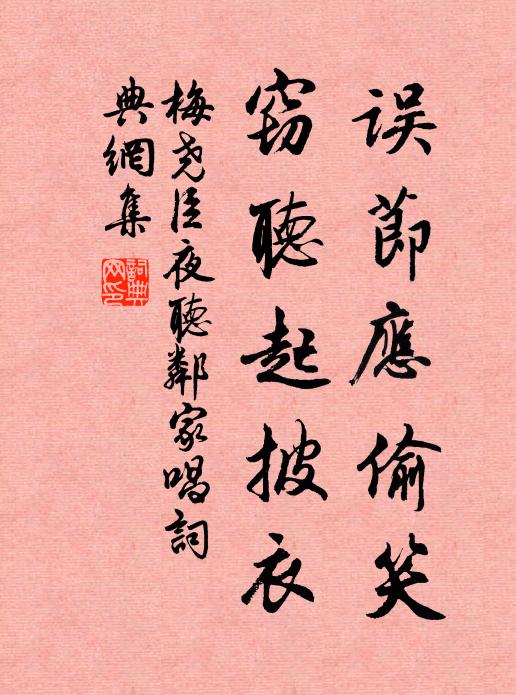 误節應偷笑
窃聽起披衣
梅尧臣夜聽鄰家唱詞
典網集
詞典網印